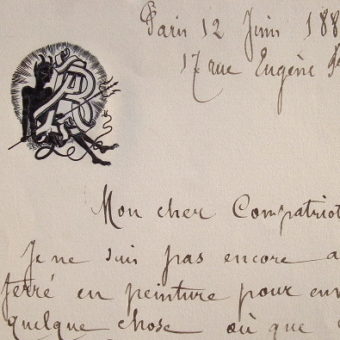 Paris 12 Juin 188
17 rue Eugène
Mon cher Compatriot
Je ne suis pas encore a
ferré en peinture pour env
quelque chose où que c